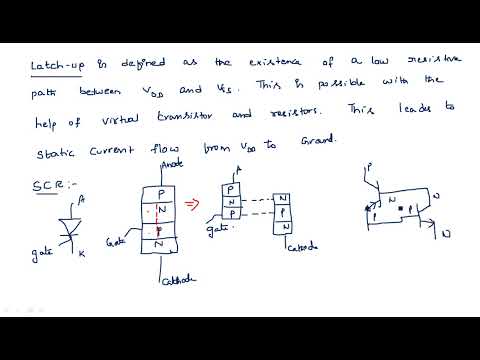 Latch-up is defined as the existence of a low resistive
path between VDD and VSS. This is possible with the
help of virtual transistor and resistors. This leads to
static current flow from VDD to Ground.
SCR:-
A
gate
K
Anode
P
N
P
N
Gate
Cathode
⇒
A
P
N
P
gate
N
P
N
Cathode
P
N
P
P
N
N